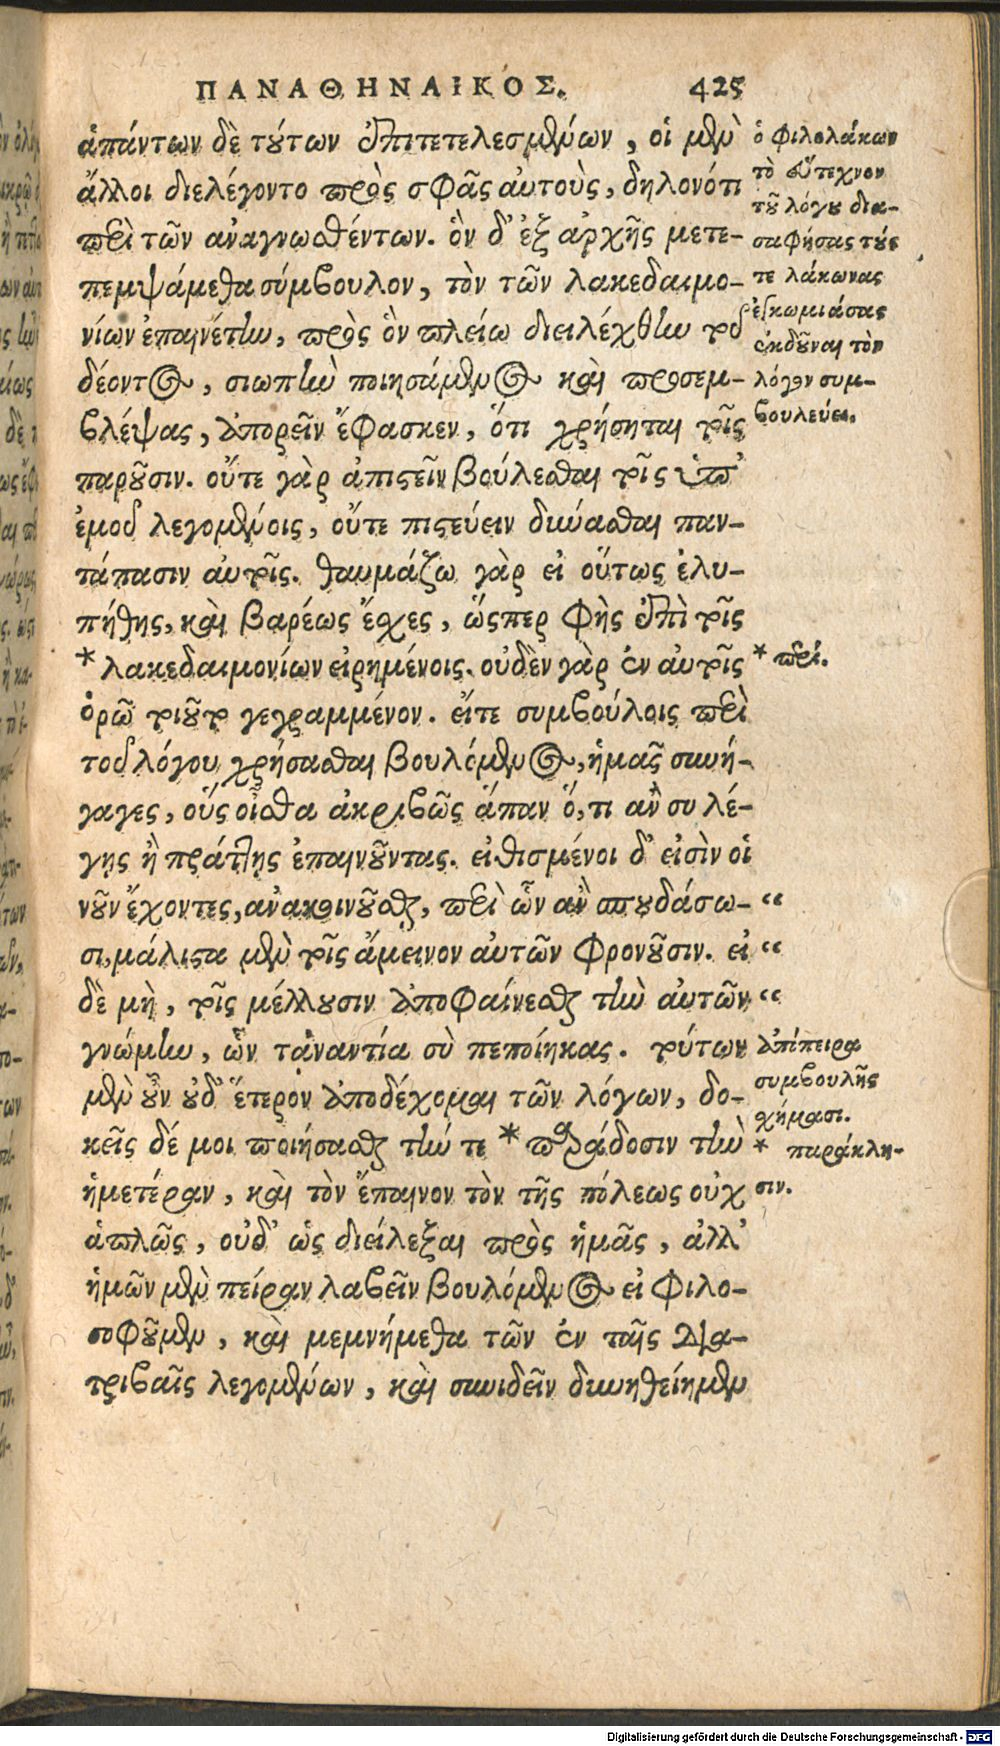 ΠΑΝΑΘΗΝΑΙΚΟΣ. 425
ἁπάντων δὲ τούτων ἐπιτετελεσμένων, οἱ μὲν
ἄλλοι διελέγοντο πρὸς σφᾶς αὐτοὺς, δηλονότι
περὶ τῶν ἀναγνωσθέντων. ὃν δ' ἐξ ἀρχῆς μετε-
πεμψάμεθα σύμβουλον, τὸν τῶν λακεδαιμο-
νίων ἐπαινέτην, πρὸς ὃν πλείω διειλέχθην τοῦ
δέοντος, σιωπὴν ποιησάμενος καὶ προσεμ-
βλέψας, ἀπορεῖν ἔφασκεν, ὅτι χρήσηται τοῖς
παροῦσιν. οὔτε γὰρ ἀπιστεῖν βούλεσθαι τοῖς ὑπ'
ἐμοῦ λεγομένοις, οὔτε πιστεύειν δύνασθαι παν-
τάπασιν αὐτοῖς. θαυμάζω γὰρ εἰ οὕτως ἐλυ-
πήθης, καὶ βαρέως ἔσχες, ὥσπερ φὴς ἐπὶ τοῖς
* λακεδαιμονίων εἰρημένοις. οὐδὲν γὰρ ἐν αὐτοῖς
ὁρῶ τοιοῦτο γεγραμμένον. εἴτε συμβούλοις περὶ
τοῦ λόγου χρήσασθαι βουλόμενος, ἡμᾶς συνή-
γαγες, οὓς οἶσθα ἀκριβῶς ἅπαν ὅ,τι ἂν συ λέ-
γῃς ἢ πράττῃς ἐπαινοῦντας. εἰθισμένοι δ' εἰσὶν οἱ
νοῦν ἔχοντες, ἀνακοινοῦσθαι, περὶ ὧν ἂν σπουδάσω- “
σι, μάλιστα μὲν τοῖς ἄμεινον αὐτῶν φρονοῦσιν. εἰ “
δὲ μὴ, τοῖς μέλλουσιν ἀποφαίνεσθαι τὴν αὐτῶν “
γνώμην, ὧν τἀναντία σὺ πεποίηκας. τούτων
μὲν οὖν οὐδ' ἕτερον ἀποδέχομαι τῶν λόγων, δο-
κεῖς δέ μοι ποιήσασθαι τήν τε * παράδοσιν τὴν
ἡμετέραν, καὶ τὸν ἔπαινον τὸν τῆς πόλεως οὐχ
ἁπλῶς, οὐδ' ὡς διείλεξαι πρὸς ἡμᾶς, ἀλλ'
ἡμῶν μὲν πεῖραν λαβεῖν βουλόμενος εἰ φιλο-
σοφοῦμεν, καὶ μεμνήμεθα τῶν ἐν ταῖς δια-
τριβαῖς λεγομένων, καὶ συνιδεῖν δυνηθείημεν
ὁ φιλολάκων
τὸ εὔτεχνον
τοῦ λόγου δια-
σαφήσας τούς
τε λάκωνας
ἐγκωμιάσας
ἐκδοῦναι τὸν
λόγον συμ-
βουλεύει.
* περί.
ἀπόπειρα
συμβουλῆς
σχήμασι.
* παράκλη-
σιν.
Digitalisierung gefördert durch die Deutsche Forschungsgemeinschaft - DFG